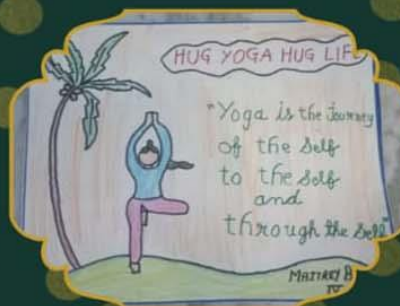 HUG YOGA HUG LIF
"Yoga is the Journey
of the Self
to the Self
and
through the Self"
B
IV